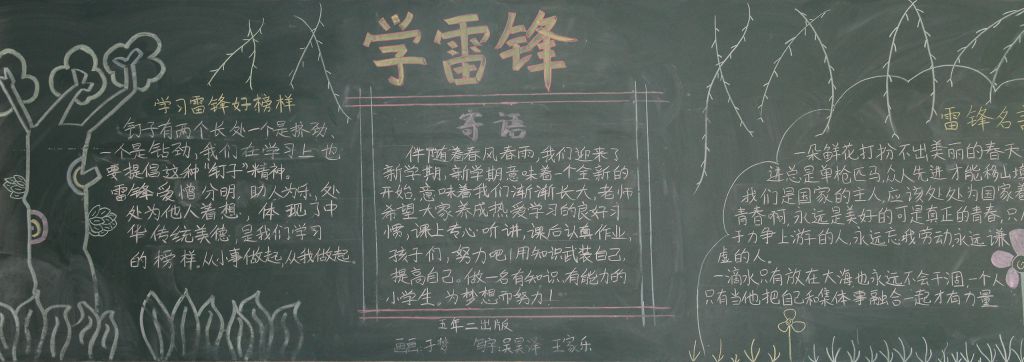 学雷锋
学习雷锋好榜样
钉子有两个长处一个是挤劲、
一个是钻劲,我们在学习上也
要提倡这种"钉子"精神。
雷锋爱憎分明,助人为乐,处
处为他人着想,体现了中
华传统美德,是我们学习
的榜样。从小事做起,从我做起。
寄语
伴随着春风春雨,我们迎来了
新学期,新学期意味着一个全新的
开始,意味着我们渐渐长大,老师
希望大家养成热爱学习的良好习
惯,课上专心听讲,课后认真作业,
孩子们,努力吧!用知识武装自己,
提高自己。做一名有知识,有能力的
小学生,为梦想而努力!
五年二出版
雷锋名言
一朵鲜花打扮不出美丽的春天
进总是单枪匹马,众人先进才能
我们是国家的主人,应该处处为国家着
青春啊,永远是美好的可是真正的青春,只
于力争上游的人,永远忘我劳动永远谦
虚的人。
一滴水只有放在大海也永远不会干涸一个人
只有当他把自己和集体事融合一起才有力量